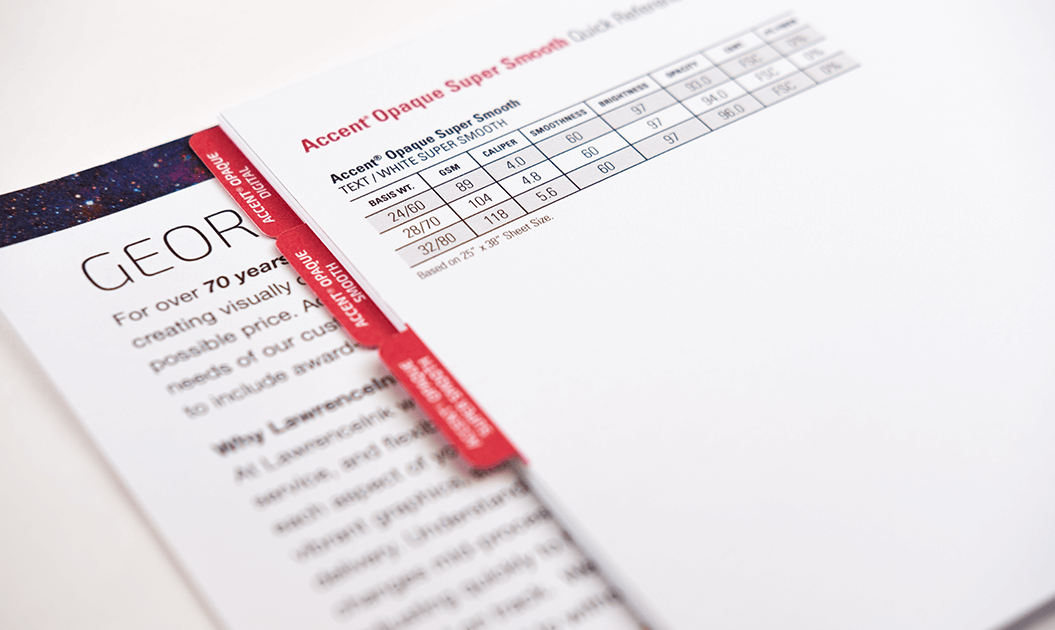 Accent® Opaque Super Smooth Quick Reference
Accent® Opaque Super Smooth
TEXT / WHITE SUPER SMOOTH
BASIS WT. GSM CALIPER SMOOTHNESS BRIGHTNESS OPACITY CERT.
24/60 89 4.0 60 97 93.0 FSC 0%
28/70 104 4.8 60 97 94.0 FSC 0%
32/80 118 5.6 60 97 96.0 FSC 0%
Based on 25" x 38" Sheet Size.
ACCENT® OPAQUE
DIGITAL
ACCENT® OPAQUE
SMOOTH
ACCENT® OPAQUE
SUPER SMOOTH
GEOR
For over 70 years
creating visually
possible price.
needs of our
to include award-
Why LawrenceInk
At LawrenceInk
service, and
each aspect of
vibrant graphics,
delivery. Understanding
changes mid-process